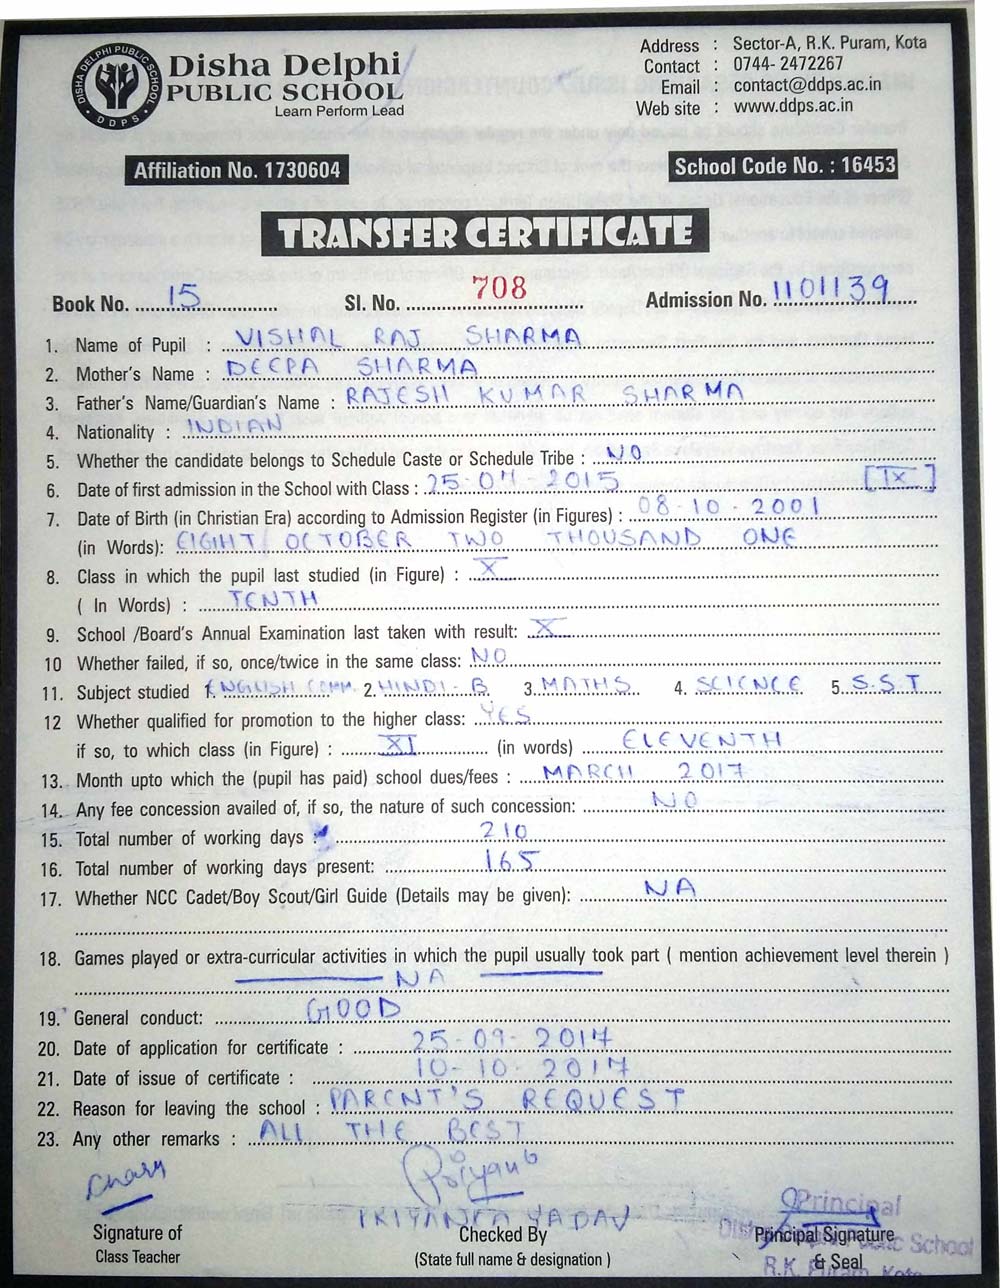 DISHA DELPHI PUBLIC SCHOOL
DDPS
Disha Delphi
PUBLIC SCHOOL
Learn Perform Lead
Address : Sector-A, R.K. Puram, Kota
Contact : 0744- 2472267
Email : contact@ddps.ac.in
Web site : www.ddps.ac.in
Affiliation No. 1730604
School Code No. : 16453
TRANSFER CERTIFICATE
Book No. 15 Sl. No. 708 Admission No. 1101139
1. Name of Pupil : VISHAL RAJ SHARMA
2. Mother's Name : DEEPA SHARMA
3. Father's Name/Guardian's Name : RAJESH KUMAR SHARMA
4. Nationality : INDIAN
5. Whether the candidate belongs to Schedule Caste or Schedule Tribe : NO
6. Date of first admission in the School with Class : 25-04-2015 [IX]
7. Date of Birth (in Christian Era) according to Admission Register (in Figures) : 08-10-2001
(in Words): EIGHT OCTOBER TWO THOUSAND ONE
8. Class in which the pupil last studied (in Figure) : X
( In Words) : TENTH
9. School /Board's Annual Examination last taken with result: X
10 Whether failed, if so, once/twice in the same class: NO
11. Subject studied 1. ENGLISH COMM. 2. HINDI-B 3. MATHS 4. SCIENCE 5. S.S.T
12 Whether qualified for promotion to the higher class: YES
if so, to which class (in Figure) : XI (in words) ELEVENTH
13. Month upto which the (pupil has paid) school dues/fees : MARCH 2017
14. Any fee concession availed of, if so, the nature of such concession: NO
15. Total number of working days : 210
16. Total number of working days present: 165
17. Whether NCC Cadet/Boy Scout/Girl Guide (Details may be given): NA
18. Games played or extra-curricular activities in which the pupil usually took part ( mention achievement level therein )
NA
19. General conduct: GOOD
20. Date of application for certificate : 25-09-2017
21. Date of issue of certificate : 10-10-2017
22. Reason for leaving the school : PARENT'S REQUEST
23. Any other remarks : ALL THE BEST
Priyanka
PRIYANKA YADAV
Principal
Public School
R.K. Puram, Kota
Signature of
Class Teacher
Checked By
(State full name & designation )
Principal Signature
& Seal